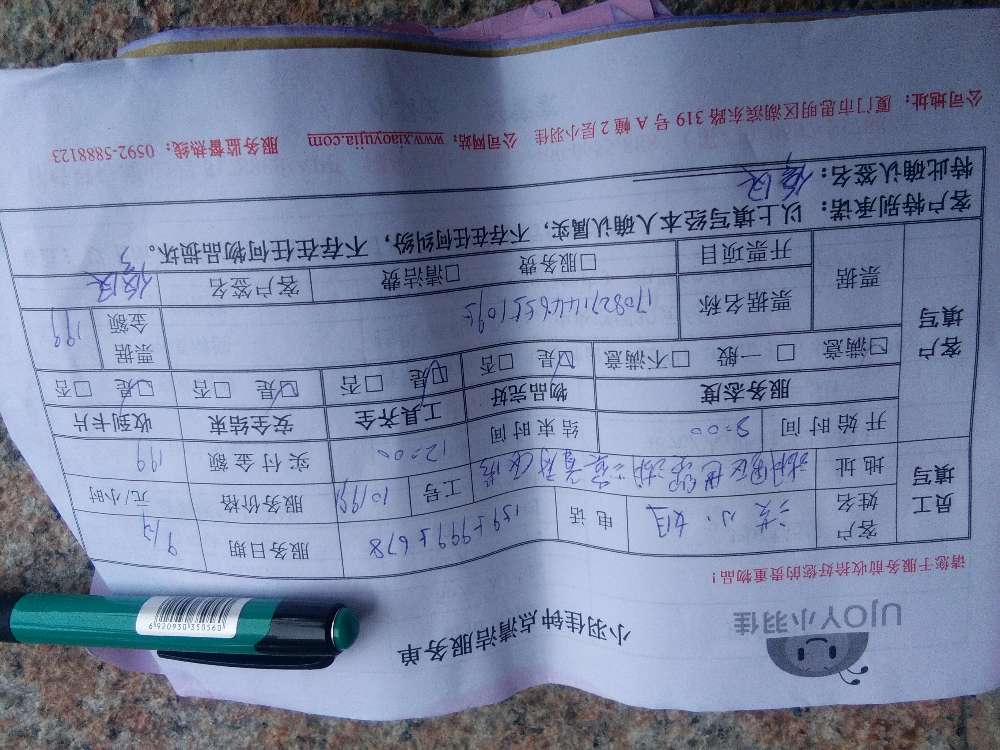 UJOY小羽佳
小羽佳钟点清洁服务单
请您于服务前收拾好您的贵重物品！
员工填写
客户姓名 小姐 电话 服务日期 9/7
地址 工号 服务价格 元/小时
开始时间 9:00 结束时间 12:00 实付金额 199
客户填写
服务态度 物品完好 工具齐全 安全结束 收到卡片
☑满意 □一般 □不满意 ☑是 □否 ☑是 □否 ☑是 □否 ☑是 □否
票据 票据名称 票据金额 199
开票项目 □服务费 □清洁费 客户签名
客户特别承诺：以上填写经本人确认属实，不存在任何纠纷，不存在任何物品损坏。
特此确认签名：
公司地址：厦门市思明区湖滨东路 319 号 A 幢 2 层小羽佳 公司网站：www.xiaoyujia.com 服务监督热线：0592-5888123
6 920930 350560